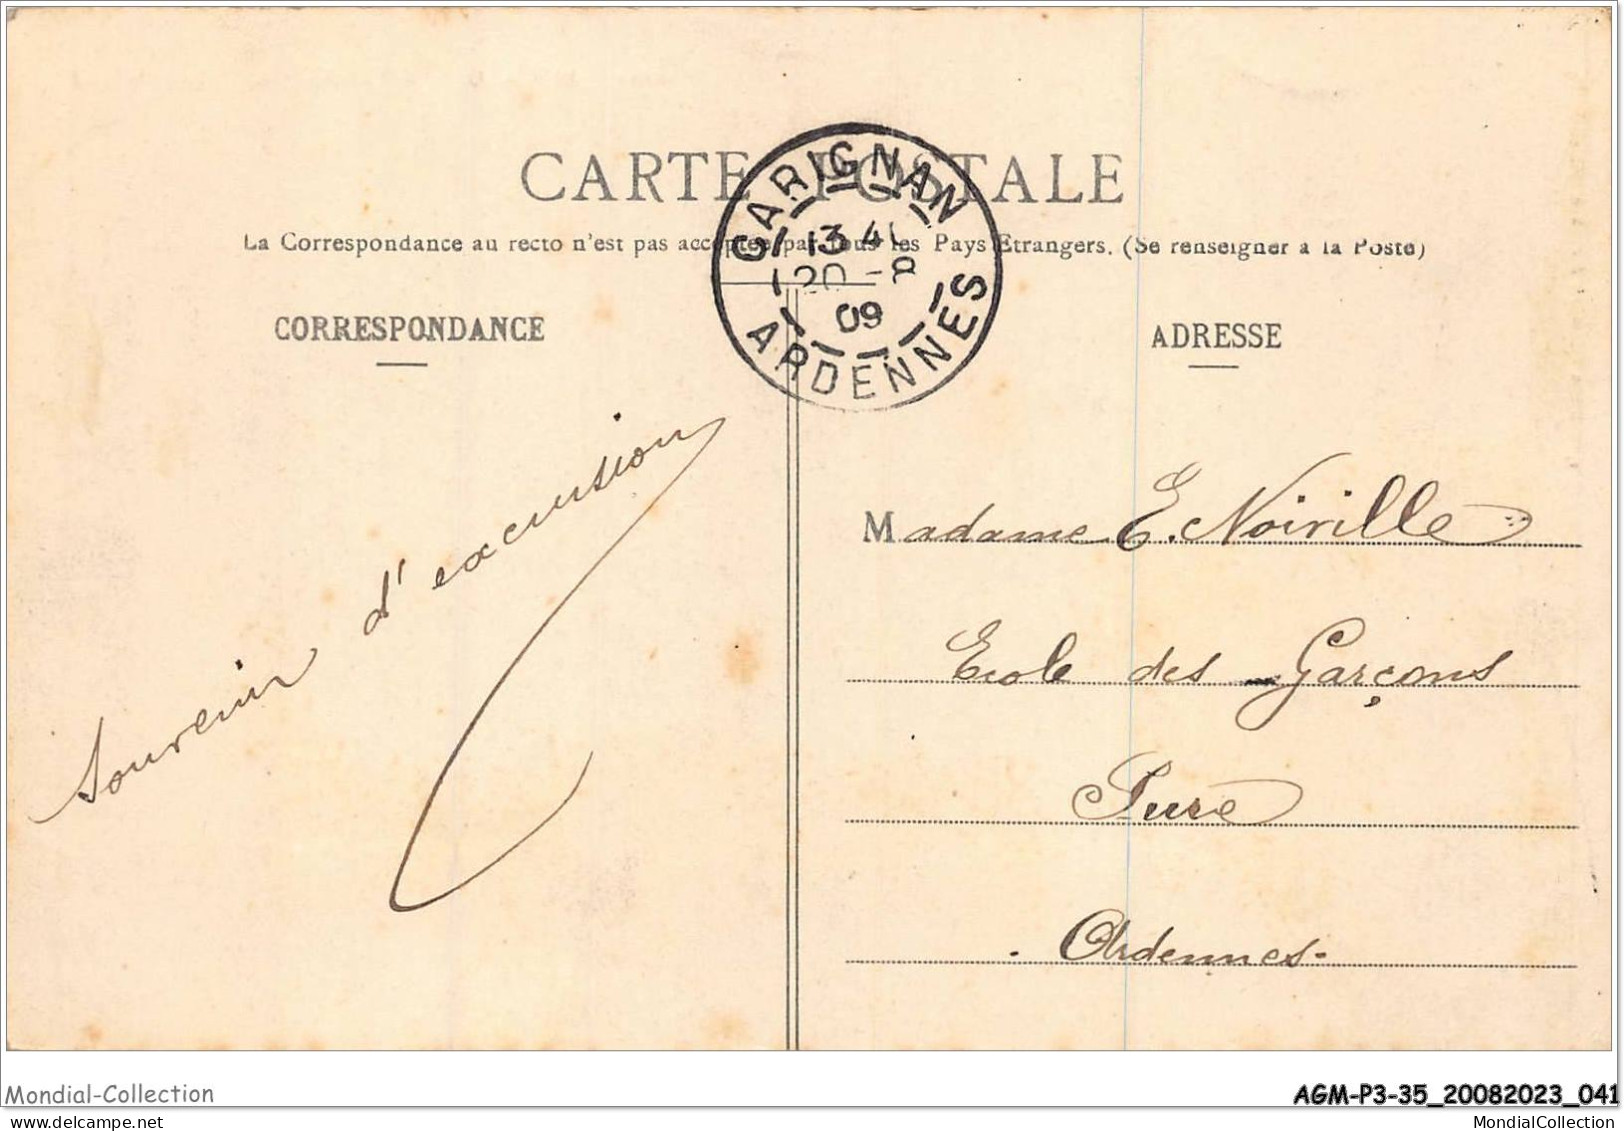 CARTE POSTALE
La Correspondance au recto n'est pas acceptée par tous les Pays Etrangers. (Se renseigner à la Poste)
CARIGNAN
13 4
20 - 8
09
ARDENNES
CORRESPONDANCE
ADRESSE
Souvenir d'excursion
Madame E. Noirille
Ecole des Garçons
Pure
Ardennes
Mondial-Collection
AGM-P3-35_20082023_041
www.delcampe.net
MondialCollection